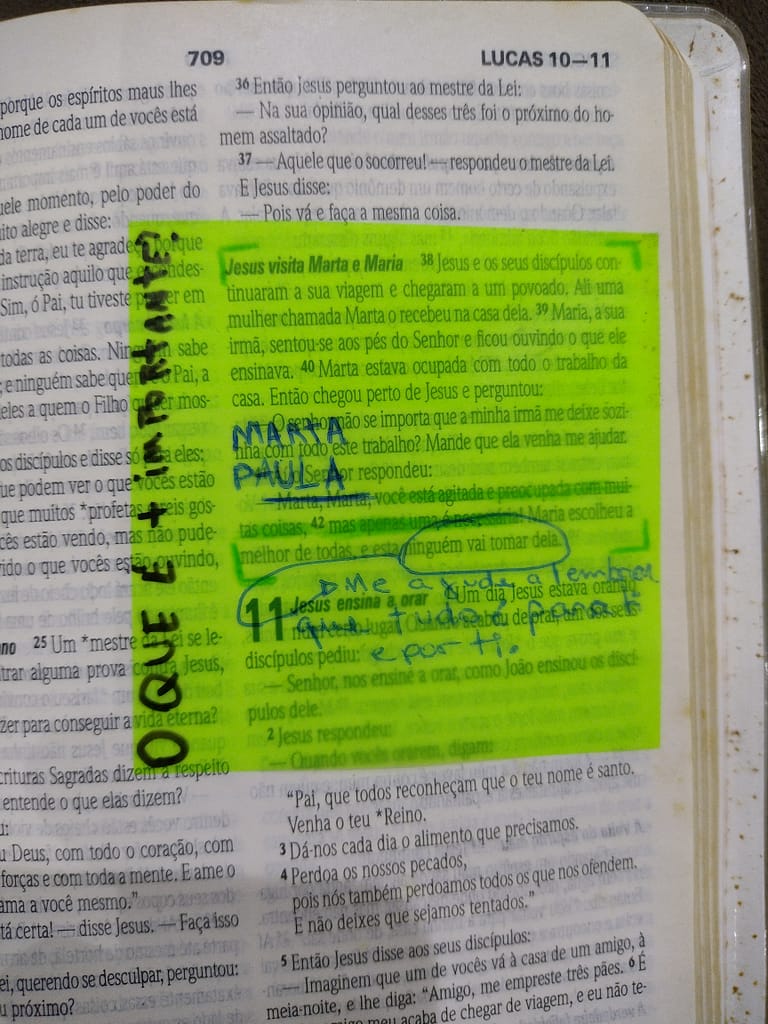 709
LUCAS 10—11
porque os espíritos maus lhes
nome de cada um de vocês está
uele momento, pelo poder do
uito alegre e disse:
da terra, eu te agradeço porque
instrução aquilo que
Sim, ó Pai, tu tiveste prazer em
todas as coisas. Ninguém sabe
; e ninguém sabe quem é o Pai, a
eles a quem o Filho quer mos-
os discípulos e disse só para eles:
ue podem ver o que vocês estão
que muitos *profetas e reis gos-
cês estão vendo, mas não pude-
vido o que vocês estão ouvindo,
no 25 Um *mestre da Lei se le-
trar alguma prova contra Jesus,
zer para conseguir a vida eterna?
crituras Sagradas dizem a respeito
entende o que elas dizem?
u:
u Deus, com todo o coração, com
forças e com toda a mente. E ame o
ama a você mesmo.”
tá certa! — disse Jesus. — Faça isso
ei, querendo se desculpar, perguntou:
u próximo?
O QUE É + IMPORTANTE?
36 Então Jesus perguntou ao mestre da Lei:
— Na sua opinião, qual desses três foi o próximo do ho-
mem assaltado?
37 — Aquele que o socorreu! — respondeu o mestre da Lei.
E Jesus disse:
— Pois vá e faça a mesma coisa.
Jesus visita Marta e Maria 38 Jesus e os seus discípulos con-
tinuaram a sua viagem e chegaram a um povoado. Ali uma
mulher chamada Marta o recebeu na casa dela. 39 Maria, a sua
irmã, sentou-se aos pés do Senhor e ficou ouvindo o que ele
ensinava. 40 Marta estava ocupada com todo o trabalho da
casa. Então chegou perto de Jesus e perguntou:
— O senhor não se importa que a minha irmã me deixe sozi-
nha com todo este trabalho? Mande que ela venha me ajudar.
MARTA
PAULA
Senhor respondeu:
— Marta, Marta, você está agitada e preocupada com mui-
tas coisas, 42 mas apenas uma é necessária! Maria escolheu a
melhor de todas, e esta ninguém vai tomar dela.
Me ajude a lembrar
que tudo é para ti
e por ti.
11 Jesus ensina a orar Um dia Jesus estava orando
num certo lugar. Quando acabou de orar, um dos seus
discípulos pediu:
— Senhor, nos ensine a orar, como João ensinou os discí-
pulos dele.
2 Jesus respondeu:
— Quando vocês orarem, digam:
“Pai, que todos reconheçam que o teu nome é santo.
Venha o teu *Reino.
3 Dá-nos cada dia o alimento que precisamos.
4 Perdoa os nossos pecados,
pois nós também perdoamos todos os que nos ofendem.
E não deixes que sejamos tentados.”
5 Então Jesus disse aos seus discípulos:
— Imaginem que um de vocês vá à casa de um amigo, à
meia-noite, e lhe diga: “Amigo, me empreste três pães. 6 É
amigo meu acaba de chegar de viagem, e eu não te-